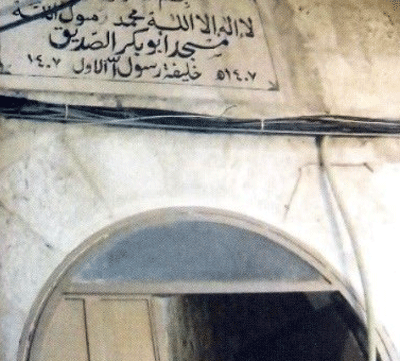 بسم الله
لا إله إلا الله محمد رسول الله
مسجد ابو بكر الصديق
١٤٠٧ھ خليفة رسول الله الاول ١٤٠٧